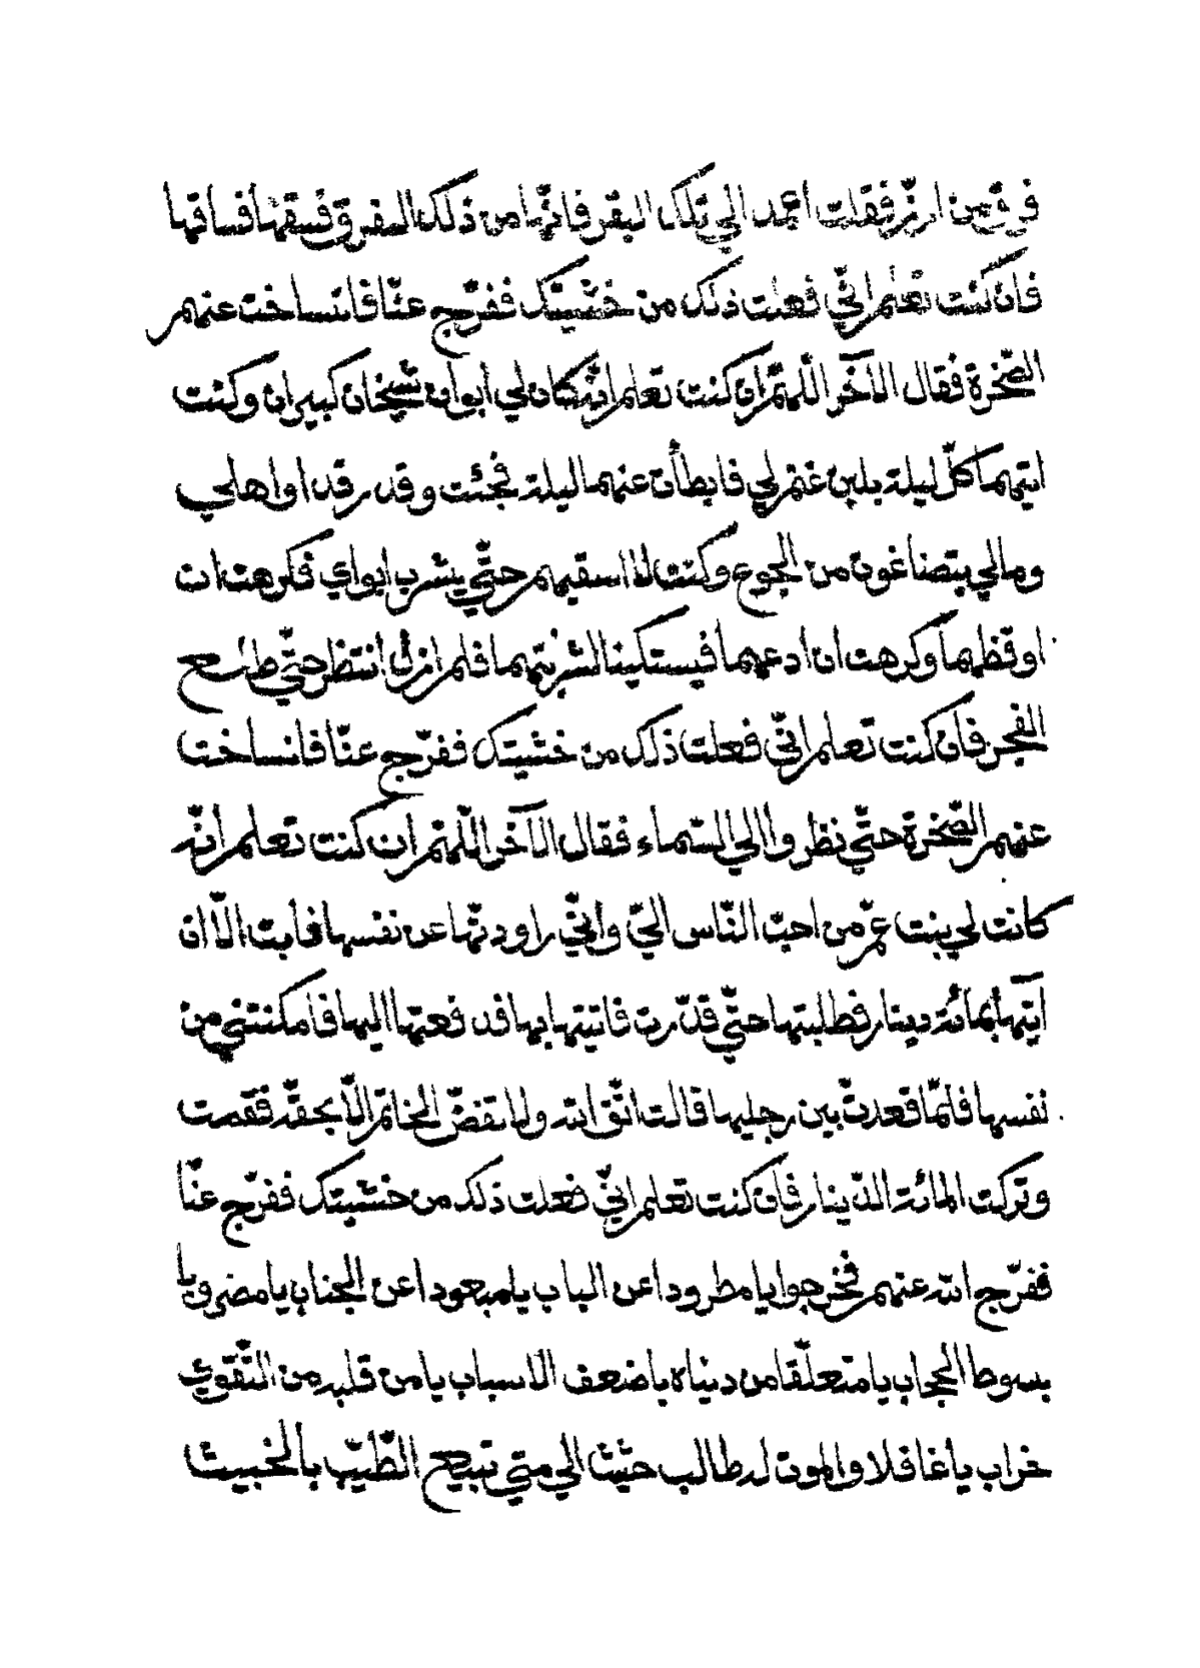 فرق من ارزّ فقلت أعمد الي تلك البقر فانّها من ذلك الفرق فسقها فساقها
فان كنت تعلم انّي فعلت ذلك من خشيتك ففرّج عنّا فانساخت عنهم
الصّخرة فقال الآخر اللّهمّ ان كنت تعلم انّه كان لي أبوان شيخان كبيران وكنت
اتيهما كلّ ليلة بلبن غنم لي فابطأت عنهما ليلة فجئت وقد رقدا واهلي
وعيالي يتضاغون من الجوع وكنت لا اسقيهم حتّي يشرب ابواي فكرهت ان
اوقظهما وكرهت ان أدعهما فيستكينا لشربتهما فلم ازل انتظر حتّي طلع
الفجر فان كنت تعلم انّي فعلت ذلك من خشيتك ففرّج عنّا فانساخت
عنهم الصّخرة حتّي نظروا الي السّماء فقال الآخر اللّهمّ ان كنت تعلم أنّه
كانت لي بنت عمّ من احبّ النّاس اليّ وأنّي راودتّها عن نفسها فأبت الّا ان
آتيها بمائة دينار فطلبتها حتّي قدّرت فاتيتها بها فدفعتها اليها فامكنتني من
نفسها فلمّا قعدتّ بين رجليها قالت اتّق الله ولا تفضّ الخاتم الّا بحقّه فقمت
وتركت المائة الدّينار فان كنت تعلم انّي فعلت ذلك من خشيتك ففرّج عنّا
ففرّج الله عنهم فخرجوا يا مطرودا عن الباب يا مبعودا عن الجناب يا مضروبا
بسوط الحجاب يا متعلّقا من دنياه باضعف الاسباب يا من قلبه من التّقوي
خراب يا غافلا والموت له طالب حثيث الي متي تبيع الطّيّب بالخبيث